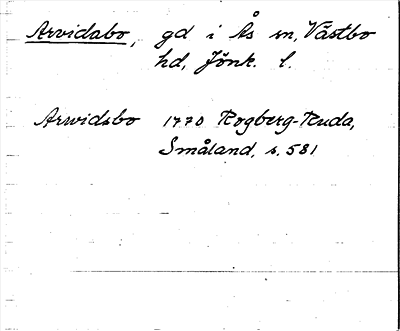 Arvidabo, gd i Ås sn, Västbo
hd, Jönk. l.
Arwidsbo 1770 Rogberg-Ruda,
Småland, s. 581